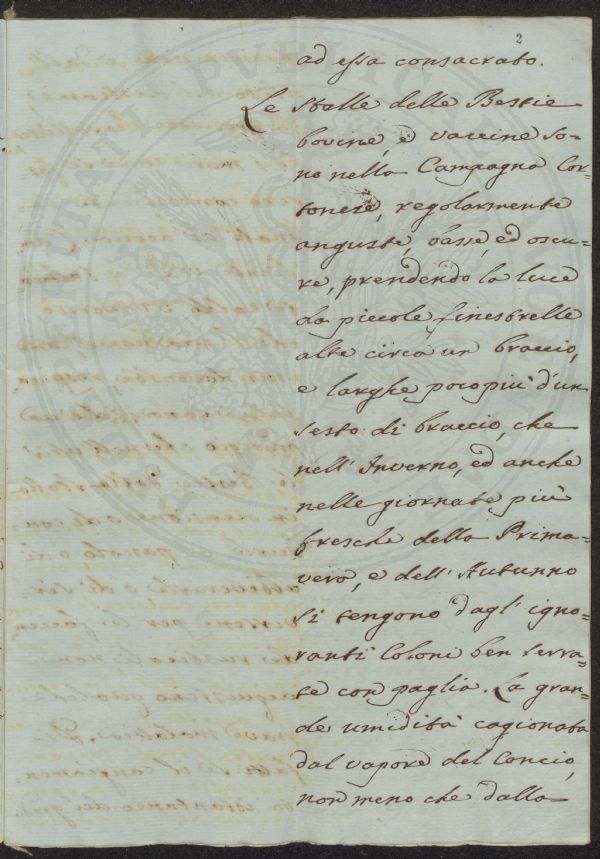 2
ad essa consacrato.
Le stalle delle Bestie
bovine, e vaccine so-
no nella Campagna Cor-
tonese, regolarmente
anguste, basse, ed oscu-
re, prendendo la luce
da piccole finestrelle
alte circa un braccio,
e larghe poco più d'un
sesto di braccio, che
nell' Inverno, ed anche
nelle giornate più
fresche della Prima-
vera, e dell' Autunno
si tengono dagl' igno-
ranti Coloni ben serra-
te con paglia. La gran-
de umidità cagionata
dal vapore del Concio,
non meno che dalla